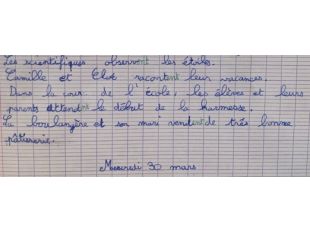 Les scientifiques observent les étoiles.
Camille et Elsa racontent leur vacances.
Dans la cour de l'école, les élèves et leurs
parents attendent le début de la kermesse.
La boulangère et son mari vendent de très bonne
pâtisserie.
Mercredi 30 mars